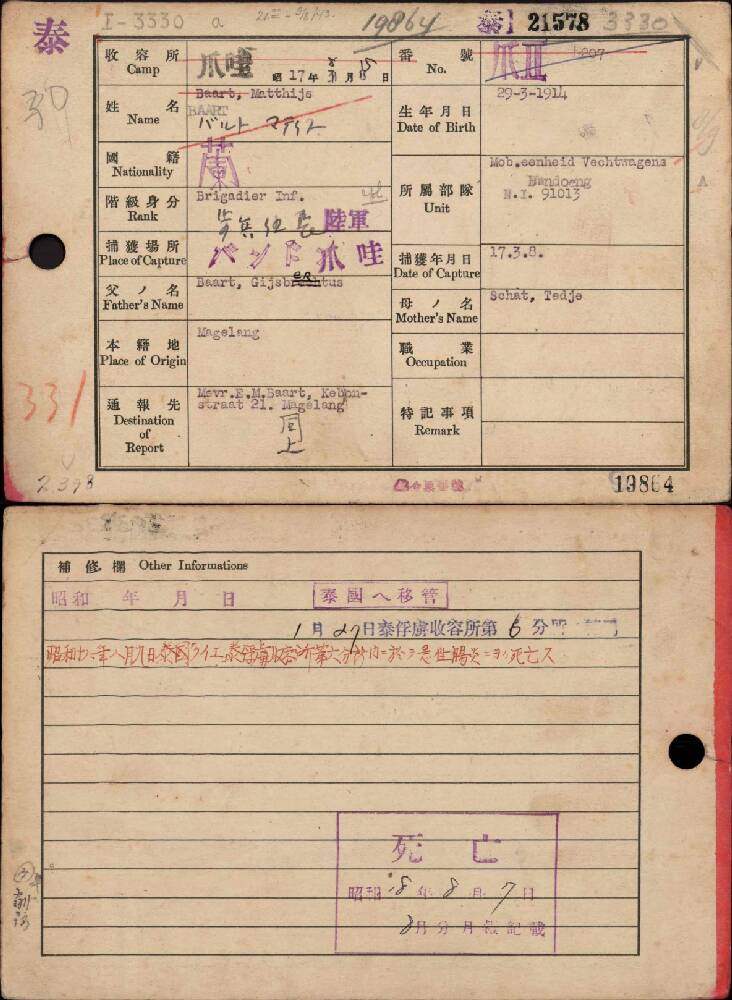 泰
I-3330 a
19864
泰 I 21578 3330
收容所 Camp
爪哇
昭 17年 8月15日
番號 No.
爪II
姓名 Name
Baart, Matthijs
BAART
バルト マティス
生年月日 Date of Birth
29-3-1914
國籍 Nationality
蘭
階級身分 Rank
Brigadier Inf.
陸軍
所屬部隊 Unit
Mob.eenheid Vechtwagens
Bandoeng
N.I. 91013
捕獲場所 Place of Capture
バンドン 爪哇
捕獲年月日 Date of Capture
17.3.8.
父ノ名 Father's Name
Baart, Gijsbertus
母ノ名 Mother's Name
Schat, Tedje
本籍地 Place of Origin
Magelang
職業 Occupation
通報先 Destination of Report
Mevr.E.M.Baart, Kebon-
straat 21. Magelang
同上
特記事項 Remark
331
2398
19864
補修欄 Other Informations
昭和 年 月 日
泰國へ移管
1月27日泰俘虜收容所第6分所
昭和十八年八月七日泰國
死亡ス
死亡
昭和18年8月7日
8月分月報記載